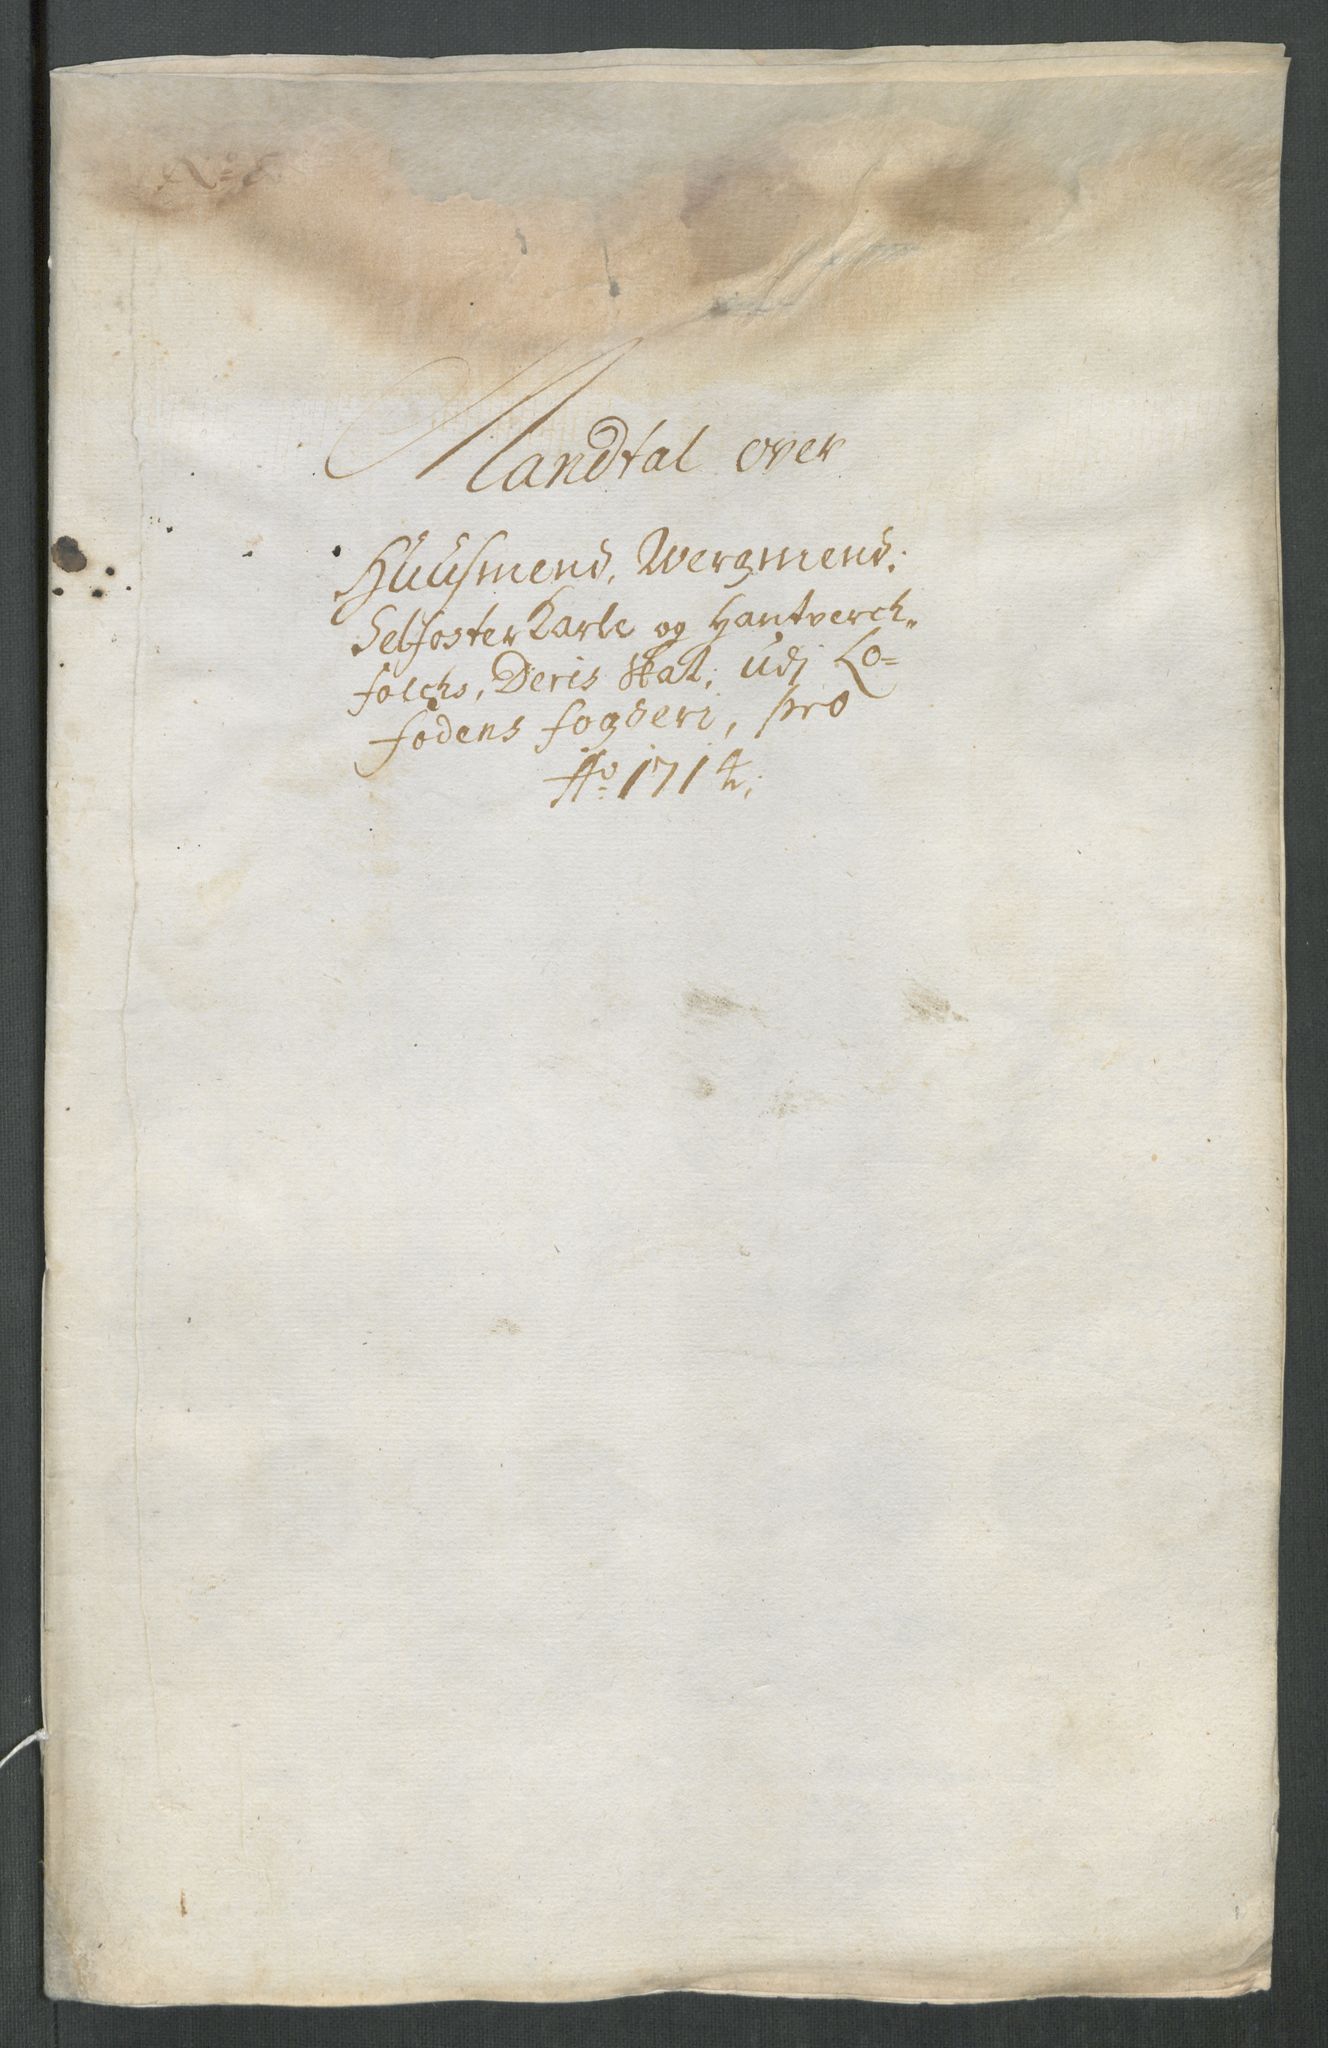 No 8
Mandtal over
Huusmend, Wergmend,
Selfoster Karle og Hantverch„
folchs, Deris Skat, udj Lo=
fodens fogderi, pro
Ao 1714,